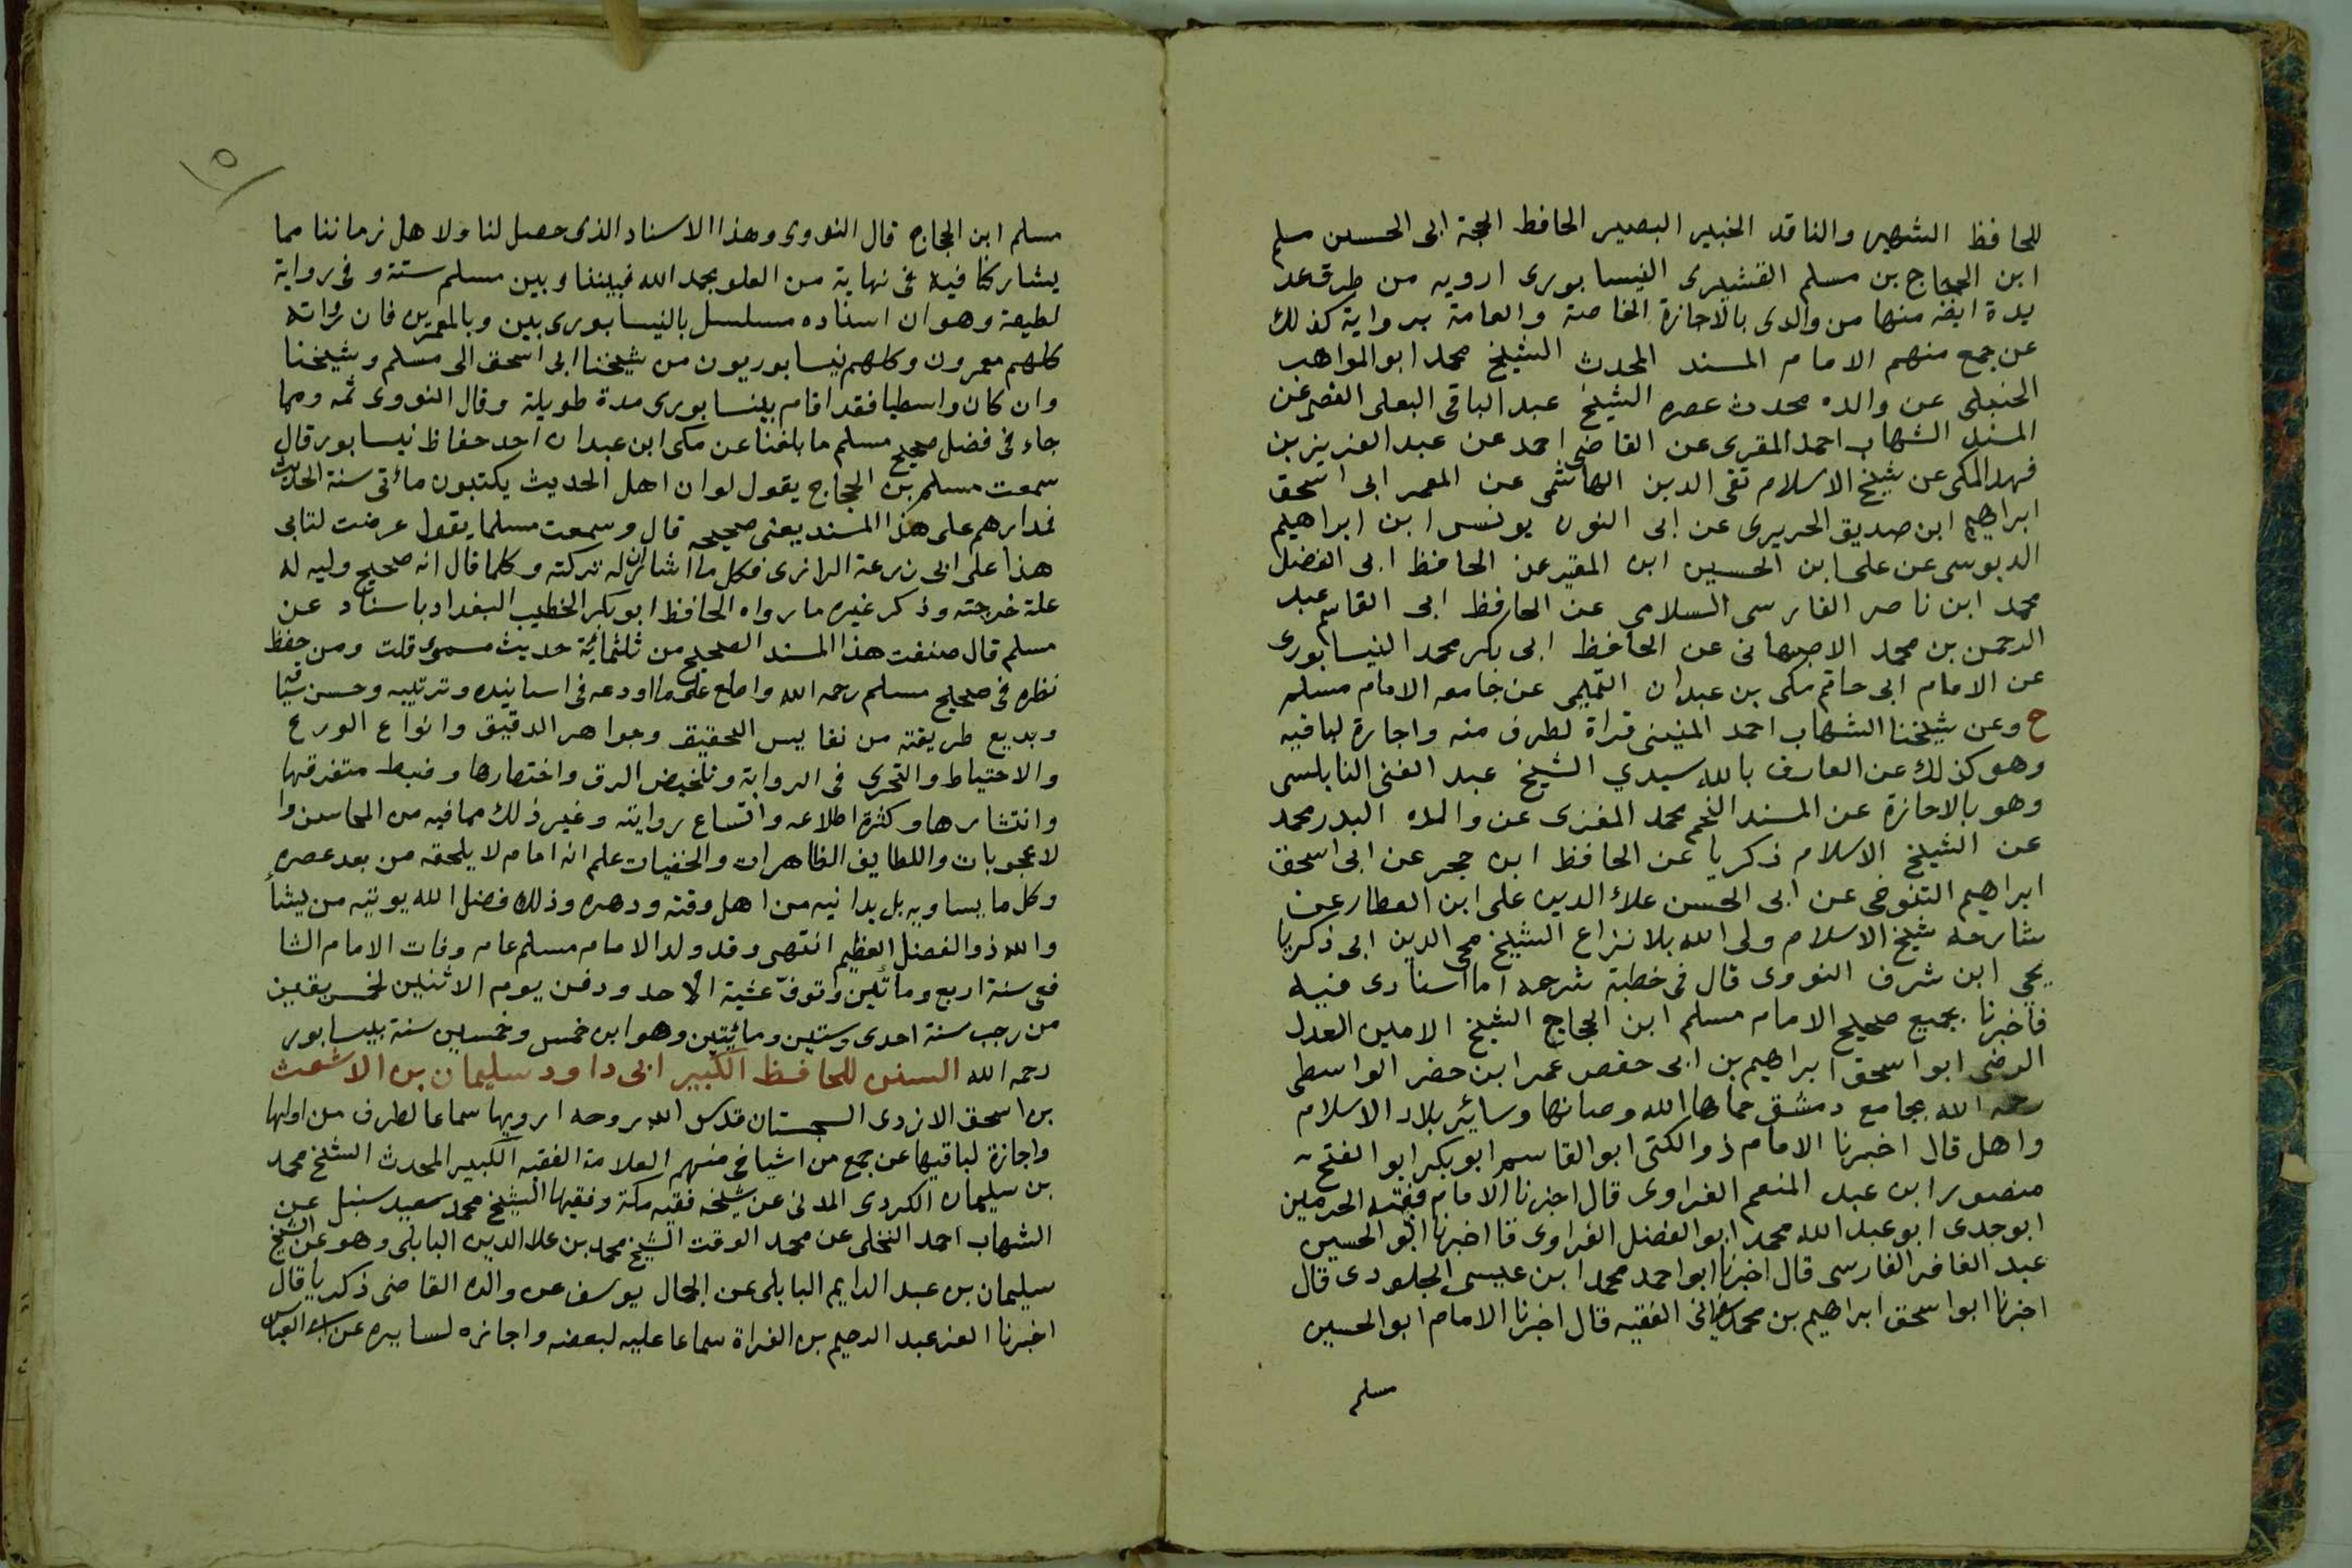 للحافظ الشهير والناقد الخبير البصير الحافظ الحجة ابى الحسين مسلم
ابن الحجاج بن مسلم القشيرى النيسابورى ارويه من طرق عد
يدة ايضه منها من والدى بالاجازة الخاصة والعامة بروايته كذلك
عن جمع منهم الامام المسند المحدث الشيخ محمد ابو المواهب
الحنبلى عن والده محدث عصره الشيخ عبد الباقى البعلى عن
المسند الشهاب احمد المقرى عن القاضى احمد عن عبد العزيز بن
فهد المكى عن شيخ الاسلام تقى الدين الهاشمى عن المعمر ابى اسحق
ابراهيم ابن صديق الحريرى عن ابى النون يونس ابن ابراهيم
الدبوسى عن على ابن الحسين ابن المقير عن الحافظ ابى الفضل
محمد ابن ناصر الفارسى السلامى عن الحافظ ابى القاسم عبد
الرحمن بن محمد الاصبهانى عن الحافظ ابى بكر محمد النيسابورى
عن الامام ابى حاتم مكى بن عبدان التميمى عن جامعه الامام مسلم
ح وعن شيخنا الشهاب احمد المنينى قراة لطرف منه واجازة لباقيه
وهو كذلك عن العارف بالله سيدي الشيخ عبد الغنى النابلسى
وهو بالاجازة عن المسند النجم محمد الغزى عن والده البدر محمد
عن الشيخ الاسلام زكريا عن الحافظ ابن حجر عن ابى اسحق
ابراهيم التنوخى عن ابى الحسن علاء الدين على ابن العطار عن
شارحه شيخ الاسلام ولى الله بلا نزاع الشيخ محى الدين ابى ذكريا
يحيى ابن شرف النووى قال فى خطبة شرحه اما اسنادى فيه
فاخبرنا بجميع صحيح الامام مسلم ابن الحجاج الشيخ الامين العدل
الرضى ابو اسحق ابراهيم بن ابى حفص عمر ابن حضر الواسطى
رحمه الله بجامع دمشق حماها الله وصانها وسائر بلاد الاسلام
واهل قال اخبرنا الامام ذو الكنى ابو القاسم ابو بكر ابو الفتح
منصور ابن عبد المنعم الفراوى قال اخبرنا الامام فقيه الحرمين
ابو جدى ابو عبد الله محمد ابو الفضل الفراوى قا اخبرنا ابو الحسين
عبد الغافر الفارسى قال اخبرنا ابو احمد محمد ابن عيسى الجلودى قال
اخبرنا ابو اسحق ابراهيم بن محمد الفقيه قال اخبرنا الامام ابو الحسين
مسلم
٥
مسلم ابن الحجاج قال النووى وهذا الاسناد الذى حصل لنا ولاهل زماننا مما
يشاركنا فيه فى نهاية من العلو بحمد الله فبيننا وبين مسلم ستة وفى رواية
لطيفة وهو ان اسناده مسلسل بالنيسابوريين وبالمعمرين فان رواته
كلهم معمرون وكلهم نيسابوريون من شيخنا ابى اسحق الى مسلم وشيخنا
وان كان واسطيا فقد اقام بنيسابورى مدة طويلة وقال النووى ثمه ومما
جاء فى فضل صحيح مسلم ما بلغنا عن مكى ابن عبدان احد حفاظ نيسابور قال
سمعت مسلم بن الحجاج يقول لو ان اهل الحديث يكتبون مائتى سنة الحديث
فمدارهم على هذا المسند يعنى صحيحه قال وسمعت مسلما يقول عرضت كتابى
هذا على ابى زرعة الرازى فكل ما اشار ان له تركته وكلما قال انه صحيح وليه له
علة خرجته وذكر غيره ما رواه الحافظ ابو بكر الخطيب البغداد باسناد عن
مسلم قال صنفت هذا المسند الصحيح من ثلثمائة حديث مسموع قلت ومن حفظ
نظره فى صحيح مسلم رحمه الله واطلع على ما اودعه فى اسانيده وترتيبه وحسن سياقه
وبديع طريقته من نفايس التحقيق وجواهر الدقيق وانواع الورع
والاحتياط والتحرى فى الرواية وتلخيص الرق واختصارها وضبط متفرقها
وانتشارها وكثرة اطلاعه واتساع روايته وغير ذلك مما فيه من المحاسن وا
لاعجوبات واللطايف الظاهرات والخفيات علم انه امام لا يلحقه من بعد عصره
وكل ما يساويه بل يدانيه من اهل وقته ودهره وذلك فضل الله يوتيه من يشأ
والله ذو الفضل العظيم انتهى وقد ولد الامام مسلم عام وفات الامام الشا
فعى سنة اربع ومأتين وتوفّ عشية الاحد ودفن يوم الاثنين لخمس بقين
من رجب سنة احدى وستين ومائتين وهو ابن خمس وخمسين سنة بنيسابور
رحمه الله السنن للحافظ الكبير ابى داود سليمان بن الاشعث
بن اسحق الازدى السجستان قدس الله روحه ارويها سماعا لطرف من اولها
واجازة لباقيها عن جمع من اشياخى منهم العلامة الفقيه الكبير المحدث الشيخ محمد
بن سليمان الكردى المدنى عن شيخه فقيه مكة وفقيها الشيخ محمد سعيد سنبل عن
الشهاب احمد النخلى عن محمد الوقت الشيخ محمد بن علا الدين البابلى وهو عن الشيخ
سليمان بن عبد الدايم البابلى عن الجمال يوسف عن والده القاضى ذكريا قال
اخبرنا العز عبد الرحيم بن الفراة سماعا عليه لبعضه واجازه لسايره عن ابى العباس